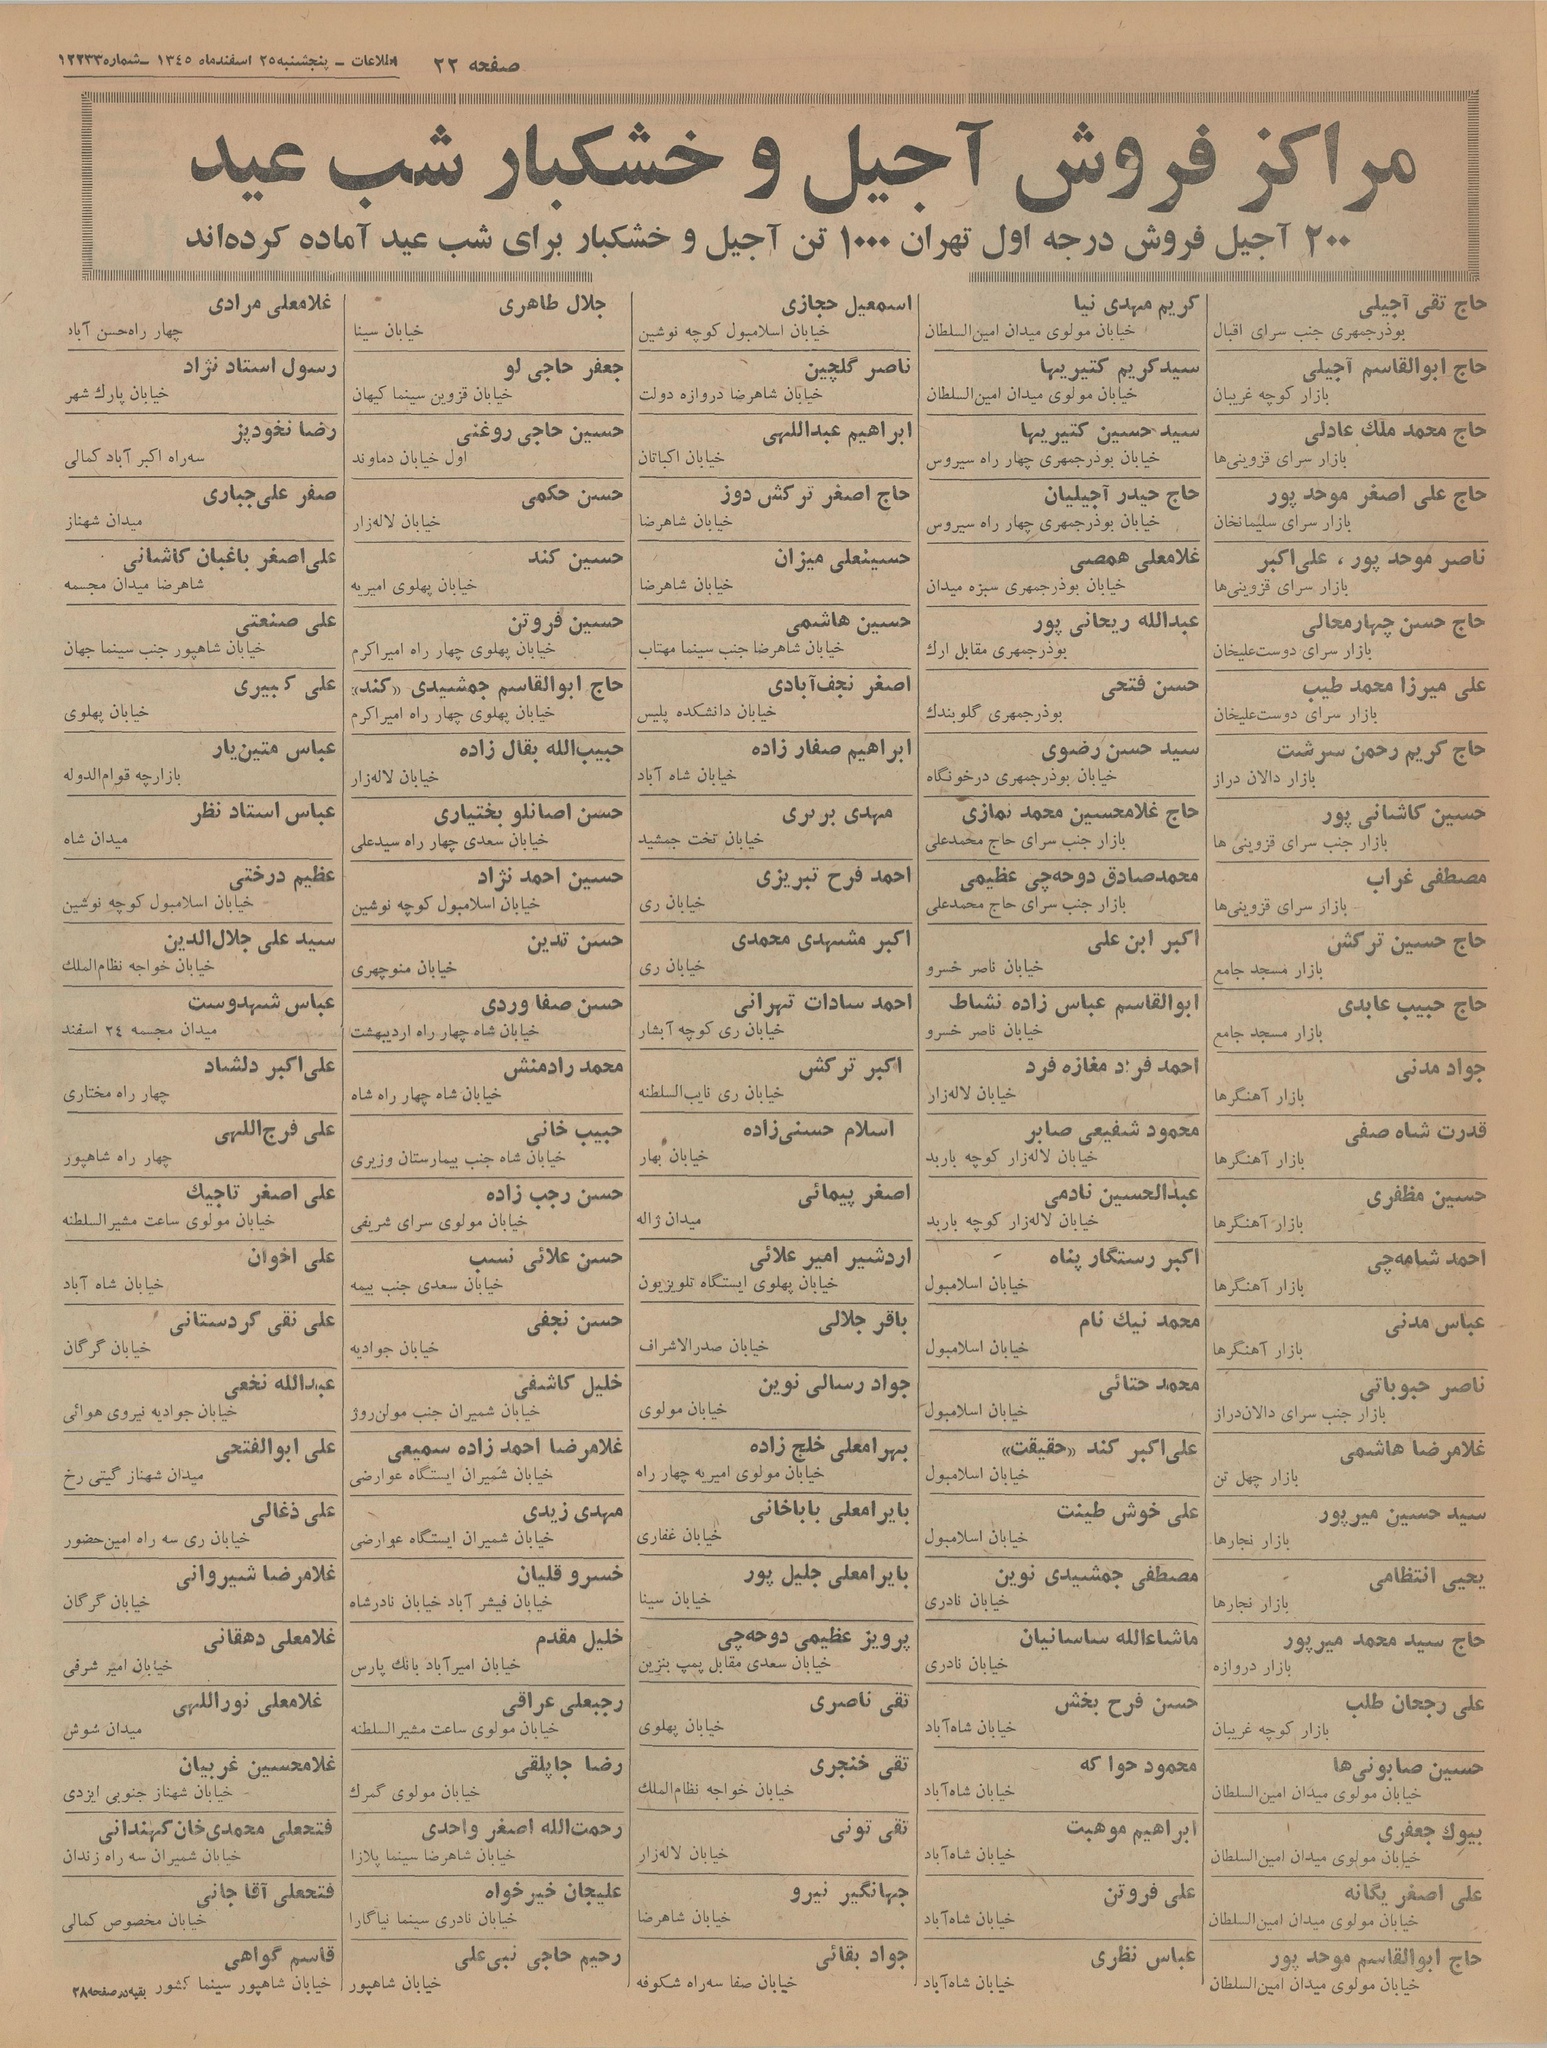 صفحه ۲۲
اطلاعات - پنجشنبه ۲۵ اسفندماه ۱۳۴۵ - شماره ۱۲۲۳۳
مراکز فروش آجیل و خشکبار شب عید
۲۰۰ آجیل فروش درجه اول تهران ۱۰۰۰ تن آجیل و خشکبار برای شب عید آماده کرده‌اند
حاج تقی آجیلی
بوذرجمهری جنب سرای اقبال
حاج ابوالقاسم آجیلی
بازار کوچه غریبان
حاج محمد ملك عادلی
بازار سرای قزوینی‌ها
حاج علی اصغر موحد پور
بازار سرای سلیمانخان
ناصر موحد پور ، علی‌اکبر
بازار سرای قزوینی‌ها
حاج حسن چهارمحالی
بازار سرای دوست‌علیخان
علی میرزا محمد طیب
بازار سرای دوست‌علیخان
حاج کریم رحمن سرشت
بازار دالان دراز
حسین کاشانی پور
بازار جنب سرای قزوینی ها
مصطفی غراب
بازار سرای قزوینی‌ها
حاج حسین ترکش
بازار مسجد جامع
حاج حبیب عابدی
بازار مسجد جامع
جواد مدنی
بازار آهنگرها
قدرت شاه صفی
بازار آهنگرها
حسین مظفری
بازار آهنگرها
احمد شامه‌چی
بازار آهنگرها
عباس مدنی
بازار آهنگرها
ناصر حبوباتی
بازار جنب سرای دالان‌دراز
غلامرضا هاشمی
بازار چهل تن
سید حسین میرپور
بازار نجارها
یحیی انتظامی
بازار نجارها
حاج سید محمد میرپور
بازار دروازه
علی رجحان طلب
بازار کوچه غریبان
حسین صابونی‌ها
خیابان مولوی میدان امین‌السلطان
بیوك جعفری
خیابان مولوی میدان امین‌السلطان
علی اصغر یگانه
خیابان مولوی میدان امین‌السلطان
حاج ابوالقاسم موحد پور
خیابان مولوی میدان امین‌السلطان
کریم مهدی نیا
خیابان مولوی میدان امین‌السلطان
سیدکریم کتیریها
خیابان مولوی میدان امین‌السلطان
سید حسین کتیریها
خیابان بوذرجمهری چهار راه سیروس
حاج حیدر آجیلیان
خیابان بوذرجمهری چهار راه سیروس
غلامعلی همصی
خیابان بوذرجمهری سبزه میدان
عبدالله ریحانی پور
بوذرجمهری مقابل ارك
حسن فتحی
بوذرجمهری گلوبندك
سید حسن رضوی
خیابان بوذرجمهری درخونگاه
حاج غلامحسین محمد نمازی
بازار جنب سرای حاج محمدعلی
محمدصادق دوحه‌چی عظیمی
بازار جنب سرای حاج محمدعلی
اکبر ابن علی
خیابان ناصر خسرو
ابوالقاسم عباس زاده نشاط
خیابان ناصر خسرو
احمد فرد مغازه فرد
خیابان لاله‌زار
محمود شفیعی صابر
خیابان لاله‌زار کوچه باربد
عبدالحسین نادمی
خیابان لاله‌زار کوچه باربد
اکبر رستگار پناه
خیابان اسلامبول
محمد نیك نام
خیابان اسلامبول
محمد حتائی
خیابان اسلامبول
علی‌اکبر کند «حقیقت»
خیابان اسلامبول
علی خوش طینت
خیابان اسلامبول
مصطفی جمشیدی نوین
خیابان نادری
ماشاءالله ساسانیان
خیابان نادری
حسن فرح بخش
خیابان شاه‌آباد
محمود حوا که
خیابان شاه‌آباد
ابراهیم موهبت
خیابان شاه‌آباد
علی فروتن
خیابان شاه‌آباد
عباس نظری
خیابان شاه‌آباد
اسمعیل حجازی
خیابان اسلامبول کوچه نوشین
ناصر گلچین
خیابان شاهرضا دروازه دولت
ابراهیم عبداللهی
خیابان اکباتان
حاج اصغر ترکش دوز
خیابان شاهرضا
حسینعلی میزان
خیابان شاهرضا
حسین هاشمی
خیابان شاهرضا جنب سینما مهتاب
اصغر نجف‌آبادی
خیابان دانشکده پلیس
ابراهیم صفار زاده
خیابان شاه آباد
مهدی بربری
خیابان تخت جمشید
احمد فرح تبریزی
خیابان ری
اکبر مشهدی محمدی
خیابان ری
احمد سادات تهرانی
خیابان ری کوچه آبشار
اکبر ترکش
خیابان ری نایب‌السلطنه
اسلام حسنی‌زاده
خیابان بهار
اصغر پیمائی
میدان ژاله
اردشیر امیر علائی
خیابان پهلوی ایستگاه تلویزیون
باقر جلالی
خیابان صدرالاشراف
جواد رسالی نوین
خیابان مولوی
بهرامعلی خلج زاده
خیابان مولوی امیریه چهار راه
بایرامعلی باباخانی
خیابان غفاری
بایرامعلی جلیل پور
خیابان سینا
پرویز عظیمی دوحه‌چی
خیابان سعدی مقابل پمپ بنزین
تقی ناصری
خیابان پهلوی
تقی خنجری
خیابان خواجه نظام‌الملك
تقی تونی
خیابان لاله‌زار
جهانگیر نیرو
خیابان شاهرضا
جواد بقائی
خیابان صفا سه‌راه شکوفه
جلال طاهری
خیابان سینا
جعفر حاجی لو
خیابان قزوین سینما کیهان
حسین حاجی روغنی
اول خیابان دماوند
حسن حکمی
خیابان لاله‌زار
حسین کند
خیابان پهلوی امیریه
حسین فروتن
خیابان پهلوی چهار راه امیراکرم
حاج ابوالقاسم جمشیدی «کند»
خیابان پهلوی چهار راه امیراکرم
حبیب‌الله بقال زاده
خیابان لاله‌زار
حسن اصانلو بختیاری
خیابان سعدی چهار راه سیدعلی
حسین احمد نژاد
خیابان اسلامبول کوچه نوشین
حسن تدین
خیابان منوچهری
حسن صفا وردی
خیابان شاه چهار راه اردیبهشت
محمد رادمنش
خیابان شاه چهار راه شاه
حبیب خانی
خیابان شاه جنب بیمارستان وزیری
حسن رجب زاده
خیابان مولوی سرای شریفی
حسن علائی نسب
خیابان سعدی جنب بیمه
حسن نجفی
خیابان جوادیه
خلیل کاشفی
خیابان شمیران جنب مولن‌روژ
غلامرضا احمد زاده سمیعی
خیابان شمیران ایستگاه عوارضی
مهدی زیدی
خیابان شمیران ایستگاه عوارضی
خسرو قلیان
خیابان فیشر آباد خیابان نادرشاه
خلیل مقدم
خیابان امیرآباد بانك پارس
رجبعلی عراقی
خیابان مولوی ساعت مشیرالسلطنه
رضا جاپلقی
خیابان مولوی گمرك
رحمت‌الله اصغر واحدی
خیابان شاهرضا سینما پلازا
علیجان خیرخواه
خیابان نادری سینما نیاگارا
رحیم حاجی نبی‌علی
خیابان شاهپور
غلامعلی مرادی
چهار راه‌حسن آباد
رسول استاد نژاد
خیابان پارك شهر
رضا نخودپز
سه‌راه اکبر آباد کمالی
صفر علی‌جباری
میدان شهناز
علی‌اصغر باغبان کاشانی
شاهرضا میدان مجسمه
علی صنعتی
خیابان شاهپور جنب سینما جهان
علی کبیری
خیابان پهلوی
عباس متین‌یار
بازارچه قوام‌الدوله
عباس استاد نظر
میدان شاه
عظیم درختی
خیابان اسلامبول کوچه نوشین
سید علی جلال‌الدین
خیابان خواجه نظام‌الملك
عباس شهدوست
میدان مجسمه ۲۴ اسفند
علی‌اکبر دلشاد
چهار راه مختاری
علی فرج‌اللهی
چهار راه شاهپور
علی اصغر تاجیك
خیابان مولوی ساعت مشیرالسلطنه
علی اخوان
خیابان شاه آباد
علی نقی کردستانی
خیابان گرگان
عبدالله نخعی
خیابان جوادیه نیروی هوائی
علی ابوالفتحی
میدان شهناز گیتی رخ
علی ذغالی
خیابان ری سه راه امین‌حضور
غلامرضا شیروانی
خیابان گرگان
غلامعلی دهقانی
خیابان امیر شرفی
غلامعلی نوراللهی
میدان شوش
غلامحسین غریبان
خیابان شهناز جنوبی ایزدی
فتحعلی محمدی‌خان‌کهندانی
خیابان شمیران سه راه زندان
فتحعلی آقا جانی
خیابان مخصوص کمالی
قاسم گواهی
خیابان شاهپور سینما کشور
بقیه در صفحه ۲۸